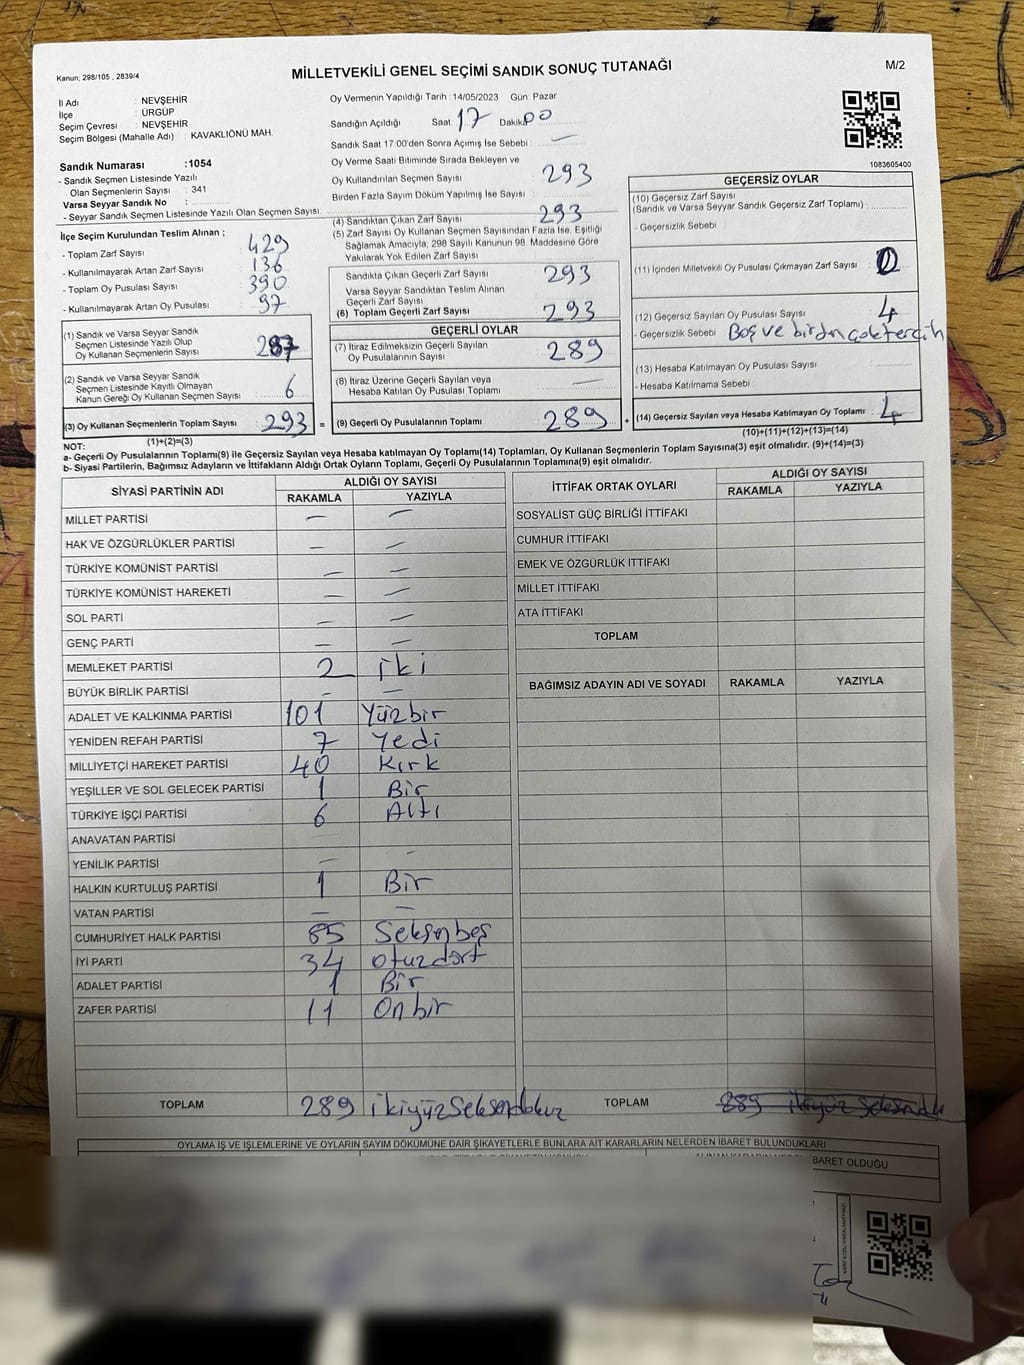 Kanun; 298/105 , 2839/4
MİLLETVEKİLİ GENEL SEÇİMİ SANDIK SONUÇ TUTANAĞI
M/2
İl Adı : NEVŞEHİR
İlçe : ÜRGÜP
Seçim Çevresi : NEVŞEHİR
Seçim Bölgesi (Mahalle Adı) : KAVAKLIÖNÜ MAH.
Sandık Numarası :1054
- Sandık Seçmen Listesinde Yazılı
Olan Seçmenlerin Sayısı : 341
Varsa Seyyar Sandık No :
- Seyyar Sandık Seçmen Listesinde Yazılı Olan Seçmen Sayısı:
İlçe Seçim Kurulundan Teslim Alınan ;
- Toplam Zarf Sayısı 429
- Kullanılmayarak Artan Zarf Sayısı 136
- Toplam Oy Pusulası Sayısı 390
- Kullanılmayarak Artan Oy Pusulası 97
(1) Sandık ve Varsa Seyyar Sandık
Seçmen Listesinde Yazılı Olup
Oy Kullanan Seçmenlerin Sayısı 287
(2) Sandık ve Varsa Seyyar Sandık
Seçmen Listesinde Kayıtlı Olmayan
Kanun Gereği Oy Kullanan Seçmen Sayısı 6
(3) Oy Kullanan Seçmenlerin Toplam Sayısı 293 =
(1)+(2)=(3)
Oy Vermenin Yapıldığı Tarih :14/05/2023 Gün: Pazar
Sandığın Açıldığı Saat: 17 Dakika: 00
Sandık Saat 17.00'den Sonra Açılmış İse Sebebi : —
Oy Verme Saati Bitiminde Sırada Bekleyen ve
Oy Kullandırılan Seçmen Sayısı : 293
Birden Fazla Sayım Döküm Yapılmış İse Sayısı :
(4) Sandıktan Çıkan Zarf Sayısı : 293
(5) Zarf Sayısı Oy Kullanan Seçmen Sayısından Fazla İse, Eşitliği
Sağlamak Amacıyla, 298 Sayılı Kanunun 98. Maddesine Göre
Yakılarak Yok Edilen Zarf Sayısı :
Sandıkta Çıkan Geçerli Zarf Sayısı : 293
Varsa Seyyar Sandıktan Teslim Alınan
Geçerli Zarf Sayısı :
(6) Toplam Geçerli Zarf Sayısı : 293
GEÇERLİ OYLAR
(7) İtiraz Edilmeksizin Geçerli Sayılan
Oy Pusulalarının Sayısı : 289
(8) İtiraz Üzerine Geçerli Sayılan veya
Hesaba Katılan Oy Pusulası Toplamı : —
(9) Geçerli Oy Pusulalarının Toplamı : 289 +
1083605400
GEÇERSİZ OYLAR
(10) Geçersiz Zarf Sayısı
(Sandık ve Varsa Seyyar Sandık Geçersiz Zarf Toplamı) :
- Geçersizlik Sebebi :
(11) İçinden Milletvekili Oy Pusulası Çıkmayan Zarf Sayısı : 0
(12) Geçersiz Sayılan Oy Pusulası Sayısı : 4
- Geçersizlik Sebebi : Boş ve birden çok tercih
(13) Hesaba Katılmayan Oy Pusulası Sayısı :
- Hesaba Katılmama Sebebi :
(14) Geçersiz Sayılan veya Hesaba Katılmayan Oy Toplamı : 4
(10)+(11)+(12)+(13)=(14)
NOT:
a- Geçerli Oy Pusulalarının Toplamı(9) ile Geçersiz Sayılan veya Hesaba katılmayan Oy Toplamı(14) Toplamları, Oy Kullanan Seçmenlerin Toplam Sayısına(3) eşit olmalıdır. (9)+(14)=(3)
b- Siyasi Partilerin, Bağımsız Adayların ve İttifakların Aldığı Ortak Oyların Toplamı, Geçerli Oy Pusulalarının Toplamına(9) eşit olmalıdır.
SİYASİ PARTİNİN ADI ALDIĞI OY SAYISI
RAKAMLA YAZIYLA
MİLLET PARTİSİ — —
HAK VE ÖZGÜRLÜKLER PARTİSİ — —
TÜRKİYE KOMÜNİST PARTİSİ — —
TÜRKİYE KOMÜNİST HAREKETİ — —
SOL PARTİ — —
GENÇ PARTİ — —
MEMLEKET PARTİSİ 2 iki
BÜYÜK BİRLİK PARTİSİ — —
ADALET VE KALKINMA PARTİSİ 101 Yüzbir
YENİDEN REFAH PARTİSİ 7 Yedi
MİLLİYETÇİ HAREKET PARTİSİ 40 Kırk
YEŞİLLER VE SOL GELECEK PARTİSİ 1 Bir
TÜRKİYE İŞÇİ PARTİSİ 6 Altı
ANAVATAN PARTİSİ
YENİLİK PARTİSİ — —
HALKIN KURTULUŞ PARTİSİ 1 Bir
VATAN PARTİSİ — —
CUMHURİYET HALK PARTİSİ 85 Seksenbeş
İYİ PARTİ 34 otuzdört
ADALET PARTİSİ 1 Bir
ZAFER PARTİSİ 11 Onbir
TOPLAM 289 ikiyüzseksendokuz
İTTİFAK ORTAK OYLARI ALDIĞI OY SAYISI
RAKAMLA YAZIYLA
SOSYALİST GÜÇ BİRLİĞİ İTTİFAKI
CUMHUR İTTİFAKI
EMEK VE ÖZGÜRLÜK İTTİFAKI
MİLLET İTTİFAKI
ATA İTTİFAKI
TOPLAM
BAĞIMSIZ ADAYIN ADI VE SOYADI RAKAMLA YAZIYLA
TOPLAM 289
OYLAMA İŞ VE İŞLEMLERİNE VE OYLARIN SAYIM DÖKÜMÜNE DAİR ŞİKAYETLERLE BUNLARA AİT KARARLARIN NELERDEN İBARET BULUNDUKLARI
BARET OLDUĞU